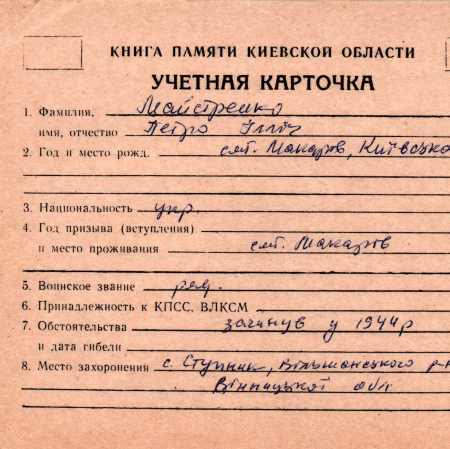 КНИГА ПАМЯТИ КИЕВСКОЙ ОБЛАСТИ
УЧЕТНАЯ КАРТОЧКА
1. Фамилия, Майстренко
имя, отчество Петро Ілліч
2. Год и место рожд. смт. Макарів, Київсько
3. Национальность укр.
4. Год призыва (вступления)
и место проживания смт. Макарів
5. Воинское звание ряд.
6. Принадлежность к КПСС, ВЛКСМ
7. Обстоятельства загинув у 1944р
и дата гибели
8. Место захоронения с. Ступник, Вільшанського р-н
Вінницької обл